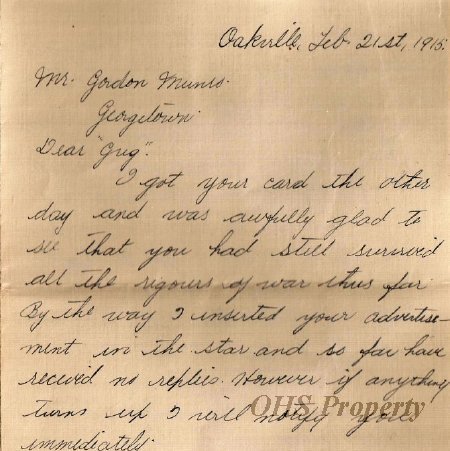 Oakville, Feb 21st, 1915.
Mr. Gordon Munro.
Georgetown.
Dear "Gug".
I got your card the other
day and was awfully glad to
see that you had still survived
all the rigours of war thus far
By the way I inserted your advertise-
ment in the star and so far have
receivd no replies. However if anything
turns up I will notify you
immediately.
OHS Property